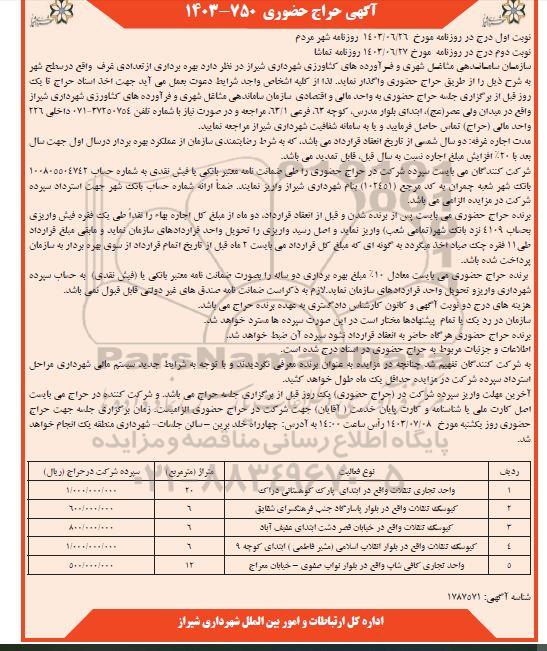 آگهی حراج حضوری ۷۵۰-۱۴۰۳
نوبت اول درج در روزنامه مورخ ۱۴۰۳/۰۶/۲۶ روزنامه شهر مردم
نوبت دوم درج در روزنامه مورخ ۱۴۰۳/۰۶/۲۷ روزنامه تماشا
سازمان ساماندهی مشاغل شهری و فرآورده های کشاورزی شهرداری شیراز در نظر دارد بهره برداری ازتعدادی غرف واقع درسطح شهر
به شرح ذیل را از طریق حراج حضوری واگذار نماید. لذا از کلیه اشخاص واجد شرایط دعوت بعمل می آید جهت اخذ اسناد حراج تا یک
روز قبل از برگزاری جلسه حراج حضوری به واحد مالی و اقتصادی سازمان ساماندهی مشاغل شهری و فرآورده های کشاورزی شهرداری شیراز
واقع در میدان ولی عصر(عج)، ابتدای بلوار مدرس، کوچه ۶۳، فرعی ۶۳/۱، مراجعه و در صورت نیاز با شماره تلفن ۳۷۲۵۰۷۵۴-۰۷۱ داخلی ۲۲۶
واحد مالی (حراج) تماس حاصل فرمایید و یا به سامانه شفافیت شهرداری شیراز مراجعه نمایید.
مدت اجاره غرفه: دو سال شمسی از تاریخ انعقاد قرارداد می باشد، که به شرط رضایتمندی سازمان از عملکرد بهره بردار درسال اول جهت سال
بعد با ۲۰٪ افزایش مبلغ اجاره نسبت به سال قبل، قابل تمدید می باشد.
شرکت کنندگان می بایست سپرده شرکت در حراج حضوری را طی ضمانت نامه معتبر بانکی یا فیش نقدی به شماره حساب ۱۰۰۸۰۵۵۰۴۷۴۲
بانک شهر شعبه چمران به کد مرجع (۱۰۲۴۵۱) بنام شهرداری شیراز واریز نمایند. ضمناً ارائه شماره حساب بانک شهر جهت استرداد سپرده
شرکت در مزایده الزامی می باشد.
برنده حراج حضوری می بایست پس از برنده شدن و قبل از انعقاد قرارداد، دو ماه از مبلغ کل اجاره بهاء را نقداً طی یک فقره فیش واریزی
بحساب ۴۱۰۹ نزد بانک شهر(تمامی شعب) واریز نماید و اصل رسید واریزی را تحویل واحد قراردادهای سازمان نماید و مابقی مبلغ قرارداد
طی۱۱ فقره چک صیاد اخذ میگردد به گونه ای که مبلغ کل قرارداد می بایست ۲ ماه قبل از تاریخ اتمام قرارداد از سوی بهره بردار به سازمان
پرداخت شده باشد.
برنده حراج حضوری می بایست معادل ۱۰٪ مبلغ بهره برداری دو ساله را بصورت ضمانت نامه معتبر بانکی یا (فیش نقدی) به حساب سپرده
شهرداری واریزو تحویل واحد قراردادهای سازمان نماید.لازم به ذکراست ضمانت نامه صندق های غیر دولتی قابل قبول نمی باشد.
هزینه های درج دو نوبت آگهی و کانون کارشناس دادگستری به عهده برنده حراج می باشد.
سازمان در رد یک یا تمام پیشنهادها مختار است در این صورت سپرده ها مسترد خواهد شد.
برنده حراج حضوری هرگاه حاضر به انعقاد قرارداد نشود سپرده آن ضبط خواهد شد.
اطلاعات و جزئیات مربوط به حراج حضوری در اسناد درج شده است.
به شرکت کنندگان تفهیم شد چنانچه در مزایده به عنوان برنده معرفی نگردیدند و با توجه به شرایط جدید سیستم مالی شهرداری مراحل
استرداد سپرده شرکت در مزایده حداقل یک ماه طول خواهد کشید.
آخرین مهلت واریز سپرده شرکت در (حراج حضوری) یک روز قبل از برگزاری جلسه حراج می باشد. و شرکت کننده در حراج می بایست
اصل کارت ملی یا شناسنامه و کارت پایان خدمت ( آقایان) جهت شرکت در حراج حضوری الزامیست. زمان برگزاری جلسه جهت حراج
حضوری روز یکشنبه مورخ ۱۴۰۳/۰۷/۰۸ رأس ساعت ۱۴:۰۰ به آدرس: چهارراه خلد برین – سالن جلسات- شهرداری منطقه یک انجام خواهد
شد.
ردیف نوع فعالیت متراژ (مترمربع) سپرده شرکت درحراج (ریال)
۱ واحد تجاری تنقلات واقع در ابتدای پارک کوهستانی دراک ۲۰ ۱/۰۰۰/۰۰۰/۰۰۰
۲ کیوسک تنقلات واقع در بلوار پاسارگاد جنب فرهنگسرای شقایق ۶ ۶۰۰/۰۰۰/۰۰۰
۳ کیوسک تنقلات واقع در خیابان قصر دشت ابتدای عفیف آباد ۶ ۸۰۰/۰۰۰/۰۰۰
۴ کیوسک تنقلات واقع در بلوار انقلاب اسلامی (مشیر فاطمی ) ابتدای کوچه ۹ ۶ ۱/۰۰۰/۰۰۰/۰۰۰
۵ واحد تجاری کافی شاپ واقع در بلوار نواب صفوی – خیابان معراج ۱۲ ۵۰۰/۰۰۰/۰۰۰
شناسه آگهی: ۱۷۸۷۵۷۱
اداره کل ارتباطات و امور بین الملل شهرداری شیراز
پایگاه اطلاع رسانی مناقصه و مزایده